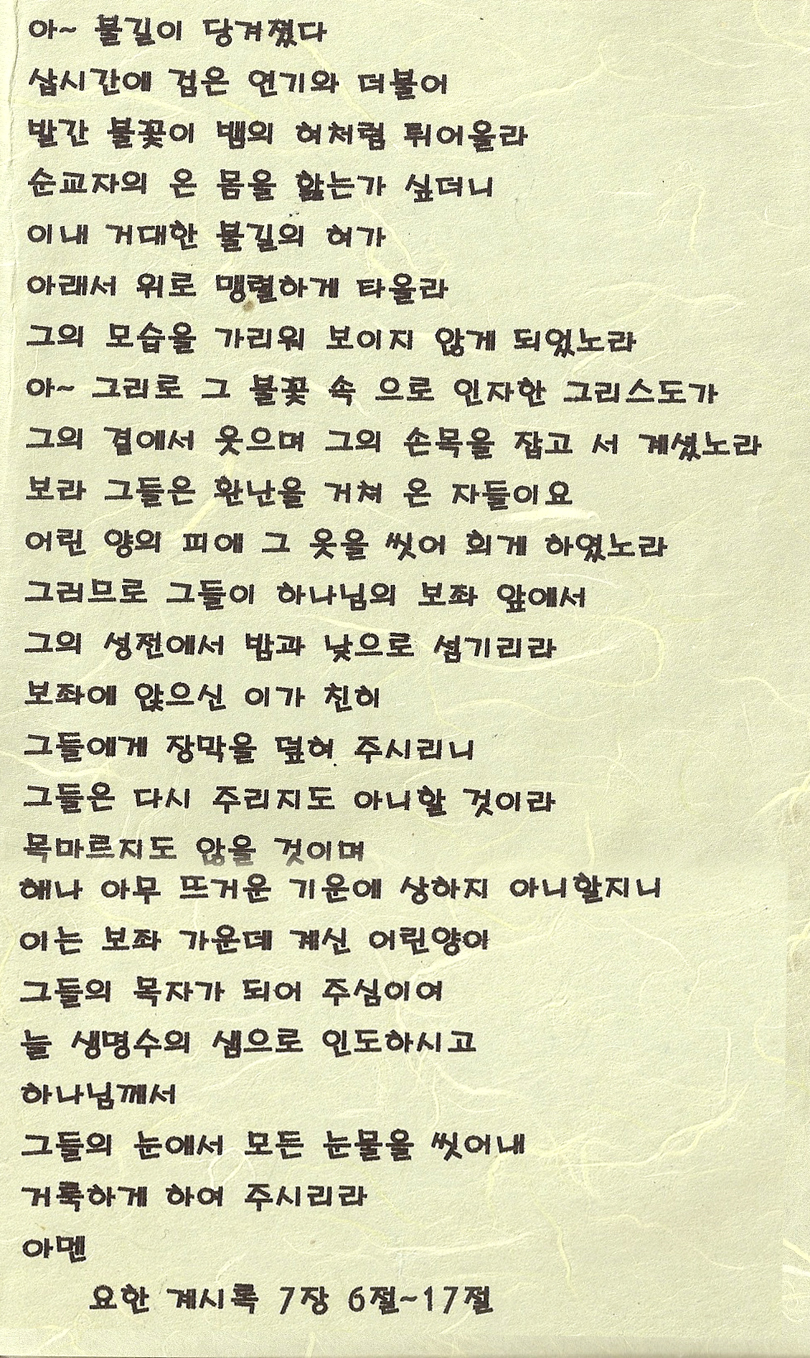 아~ 불길이 당겨졌다
삽시간에 검은 연기와 더불어
발간 불꽃이 뱀의 혀처럼 튀어올라
순교자의 온 몸을 핥는가 싶더니
이내 거대한 불길의 혀가
아래서 위로 맹렬하게 타올라
그의 모습을 가리워 보이지 않게 되었노라
아~ 그리로 그 불꽃 속 으로 인자한 그리스도가
그의 곁에서 웃으며 그의 손목을 잡고 서 계셨노라
보라 그들은 환난을 거쳐 온 자들이요
어린 양의 피에 그 옷을 씻어 희게 하였노라
그러므로 그들이 하나님의 보좌 앞에서
그의 성전에서 밤과 낮으로 섬기리라
보좌에 앉으신 이가 친히
그들에게 장막을 덮혀 주시리니
그들은 다시 주리지도 아니할 것이라
목마르지도 않을 것이며
해나 아무 뜨거운 기운에 상하지 아니할지니
이는 보좌 가운데 계신 어린양이
그들의 목자가 되어 주심이여
늘 생명수의 샘으로 인도하시고
하나님께서
그들의 눈에서 모든 눈물을 씻어내
거룩하게 하여 주시리라
아멘
요한 계시록 7장 6절~17절